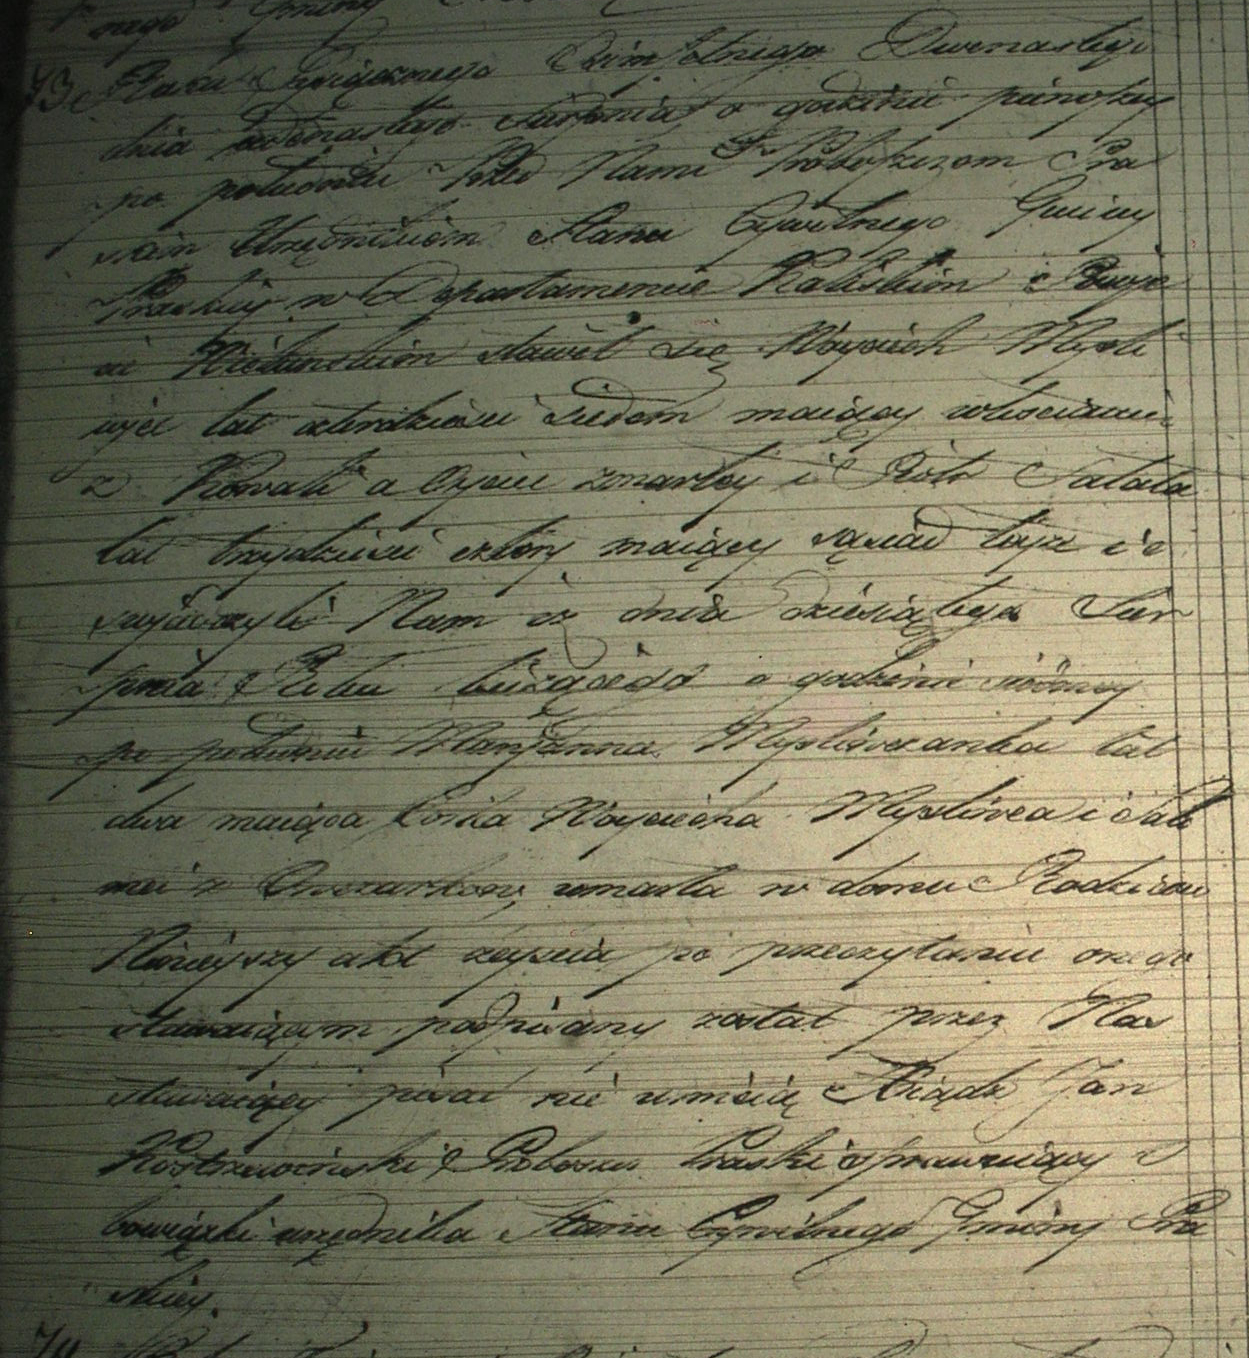 nego Gminy
73 Roku Tysiącznego Ośmsetnego Dwunastego
dnia Sierpnia o godzinie pierwszey
po południu Przed Nami Proboszczem Pra
skim Urzędnikiem Stanu Cywilnego Gminy
Praskiey w Departamencie Kaliskim i Powie
cie Wieluńskim stawił się Woyciech Myśli
wiec lat czterdzieści siedem maiący włościanin
z Kowali a Oyciec zmarłey i Piotr Salata
lat trzydzieści cztery maiący sąsiad tayże i o
swiadczyli Nam iż dnia dziesiątego Sier
pnia Roku bieżącego o godzinie siódmey
po południu Maryanna Mysliweczanka lat
dwa maiąca Córka Woyciecha Mysliwca i
z umarła w domu Rodziców
Ninieyszy akt zeyscia po przeczytaniu onego
stawaiącym podpisany został przez Nas
stawaiący pisać nie umieią Xiądz Jan
Proboszcz Praski sprawuiący o
bowiązki urzędnika Stanu Cywilnego Gminy Pra
skiey.
74